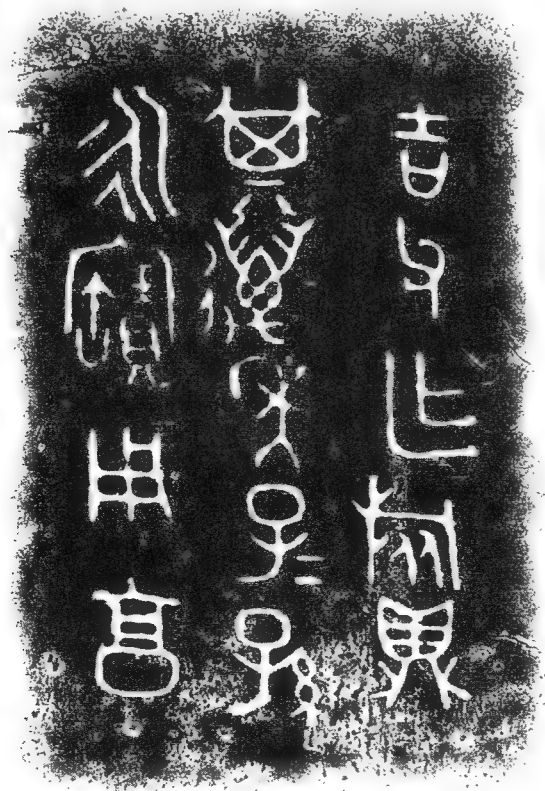 吉父乍旅鼎
其萬年子=孫
永寶用享